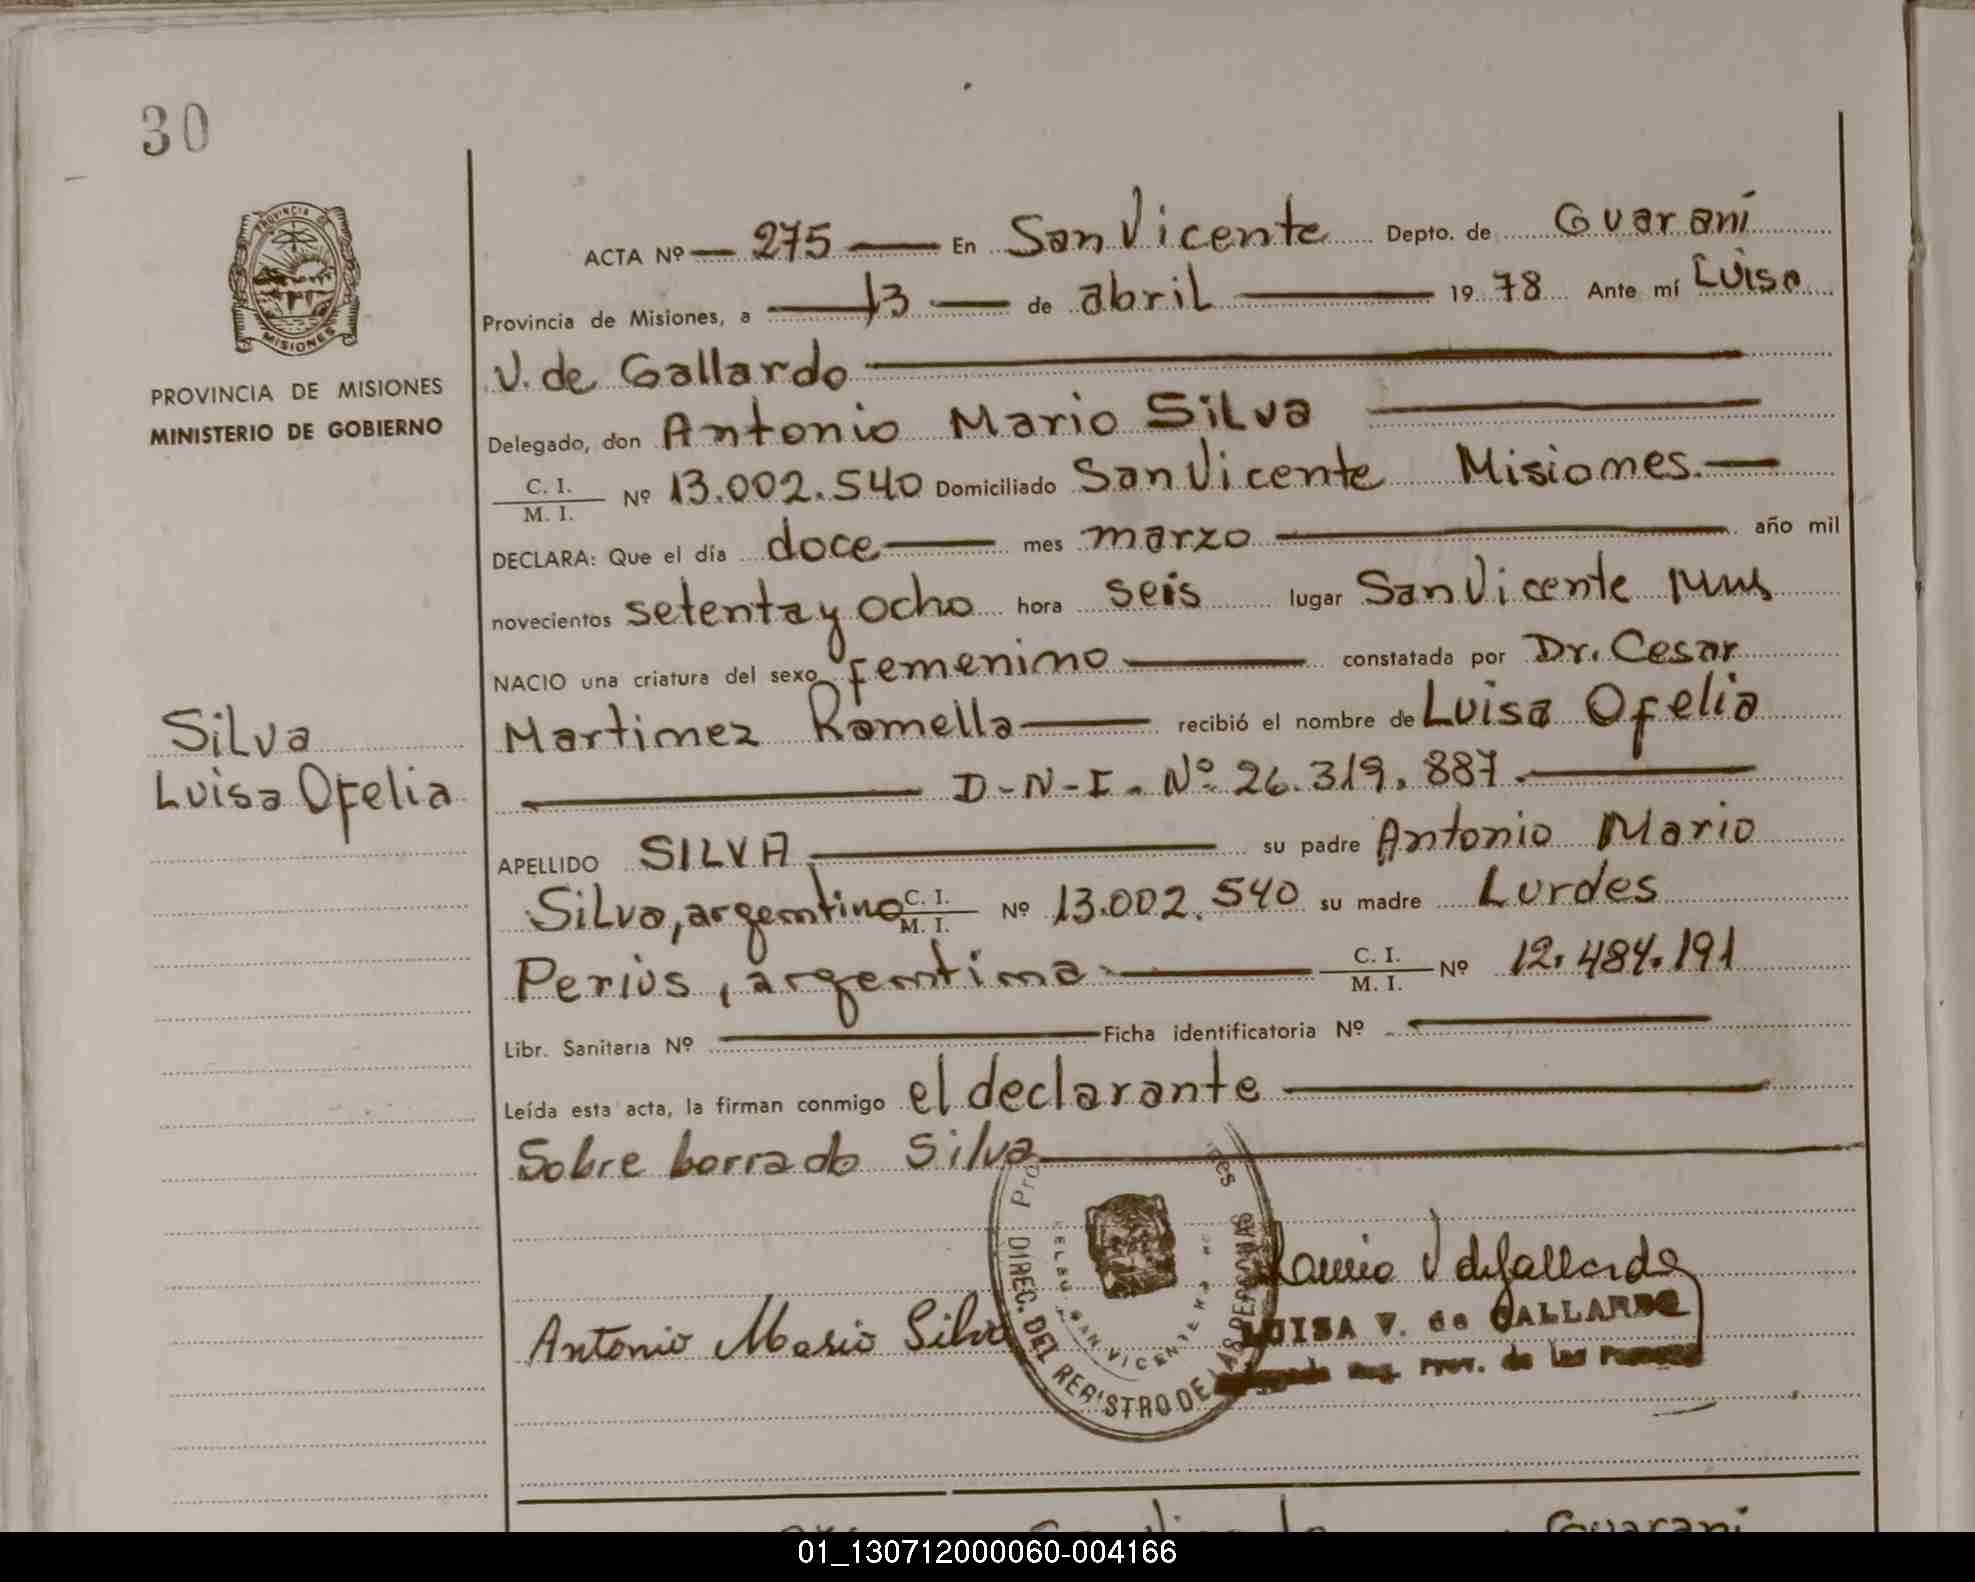 30
PROVINCIA DE
MISIONES
PROVINCIA DE MISIONES
MINISTERIO DE GOBIERNO
Silva
Luisa Ofelia
ACTA Nº 275 En San Vicente Depto. de Guaraní
Provincia de Misiones, a 13 de abril 1978 Ante mí Luisa
V. de Gallardo
Delegado, don Antonio Mario Silva
C. I. / M. I. Nº 13.002.540 Domiciliado San Vicente Misiones.
DECLARA: Que el día doce mes marzo año mil
novecientos setenta y ocho hora seis lugar San Vicente Mnes
NACIO una criatura del sexo femenino constatada por Dr. Cesar
Martinez Ramella recibió el nombre de Luisa Ofelia
D-N-I- Nº 26.319.887
APELLIDO SILVA su padre Antonio Mario
Silva, argentino C. I. / M. I. Nº 13.002.540 su madre Lurdes
Perius, argentina C. I. / M. I. Nº 12.484.191
Libr. Sanitaria Nº Ficha identificatoria Nº
Leída esta acta, la firman conmigo el declarante
Sobre borrado Silva
Antonio Mario Silva
DIREC. DEL REGISTRO DE LAS PERSONAS
SAN VICENTE
V de Gallardo
LUISA V. de GALLARDO
Reg. Prov. de las
San Vicente Guaraní
01_130712000060-004166